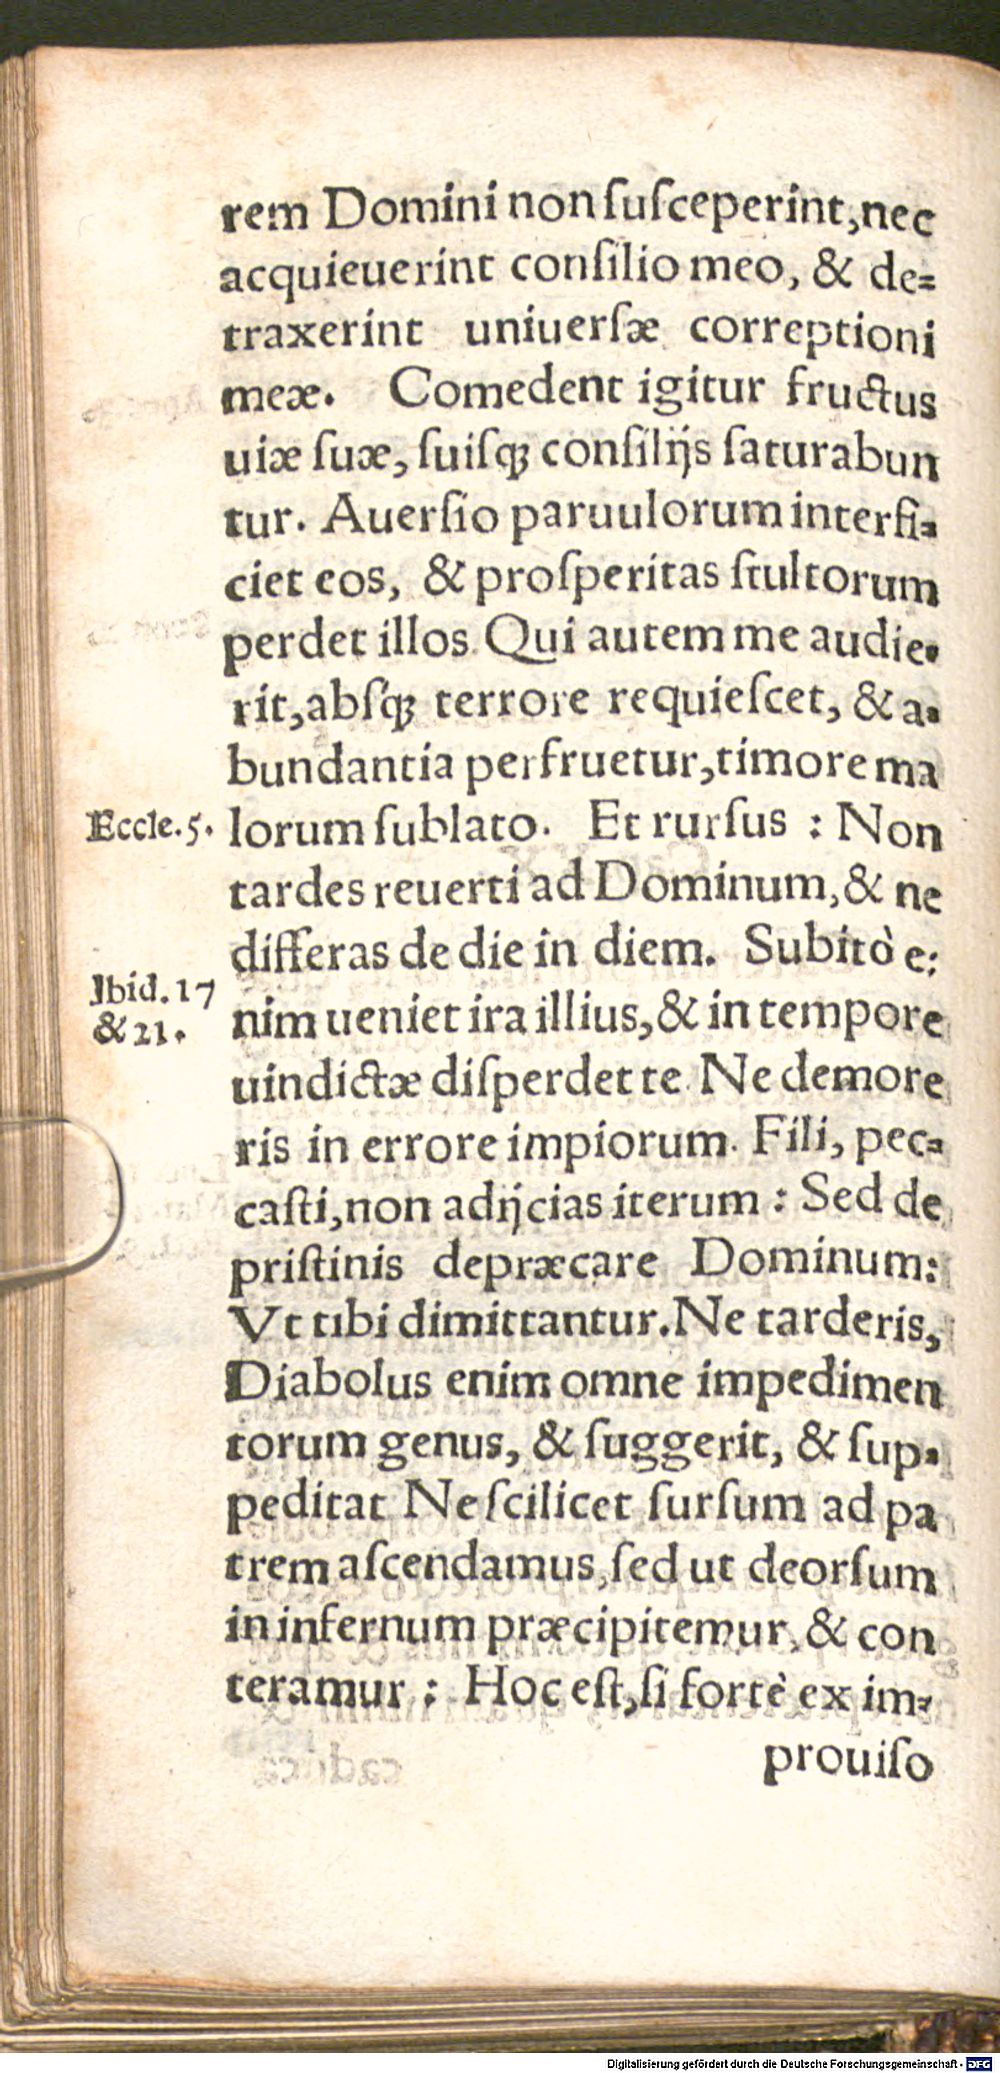 rem Domini non ſuſceperint, nec
acquieuerint conſilio meo, & de=
traxerint uniuerſæ correptioni
meæ. Comedent igitur fructus
uiæ ſuæ, ſuiſqꝫ conſilijs ſaturabun
tur. Auerſio paruulorum interfi=
ciet eos, & proſperitas ſtultorum
perdet illos. Qui autem me audie-
rit, abſqꝫ terrore requieſcet, & a-
bundantia perfruetur, timore ma
Eccle.5. lorum ſublato. Et rurſus : Non
tardes reuerti ad Dominum, & ne
differas de die in diem. Subitò e:
Ibid.17
& 21.
nim ueniet ira illius, & in tempore
uindictæ diſperdet te. Ne demore
ris in errore impiorum. Fili, pec=
caſti, non adijcias iterum : Sed de
priſtinis depræcare Dominum:
Vt tibi dimittantur. Ne tarderis,
Diabolus enim omne impedimen
torum genus, & ſuggerit, & ſup-
peditat Ne ſcilicet ſurſum ad pa
trem aſcendamus, ſed ut deorſum
in infernum præcipitemur, & con
teramur : Hoc eſt, ſi fortè ex im-
prouiſo
Digitalisierung gefördert durch die Deutsche Forschungsgemeinschaft - DFG